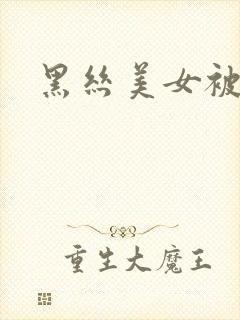 黑丝美女被
重生大魔王